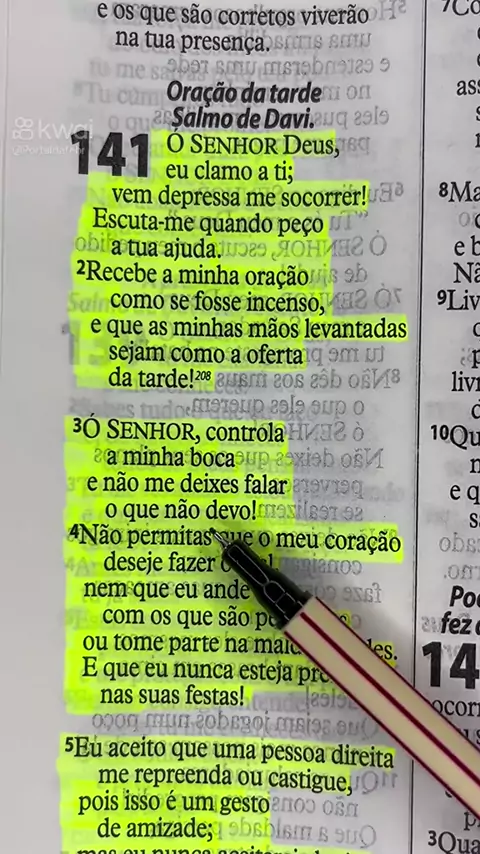 e os que são corretos viverão
na tua presença.
Oração da tarde
Salmo de Davi.
kwai
141 Ó SENHOR Deus,
eu clamo a ti;
vem depressa me socorrer!
Escuta-me quando peço
a tua ajuda.
²Recebe a minha oração
como se fosse incenso,
e que as minhas mãos levantadas
sejam como a oferta
da tarde!²⁰⁸
³Ó SENHOR, controla
a minha boca
e não me deixes falar
o que não devo!
⁴Não permitas que o meu coração
deseje fazer
nem que eu ande
com os que são
ou tome parte na
E que eu nunca esteja
nas suas festas!
⁵Eu aceito que uma pessoa direita
me repreenda ou castigue,
pois isso é um gesto
de amizade;
mas eu nunca
⁷Co
⁸Ma
e b
Nã
⁹Liv
livr
¹⁰Qu
e q
s
Po
fez d
14
ocorr
³Qua